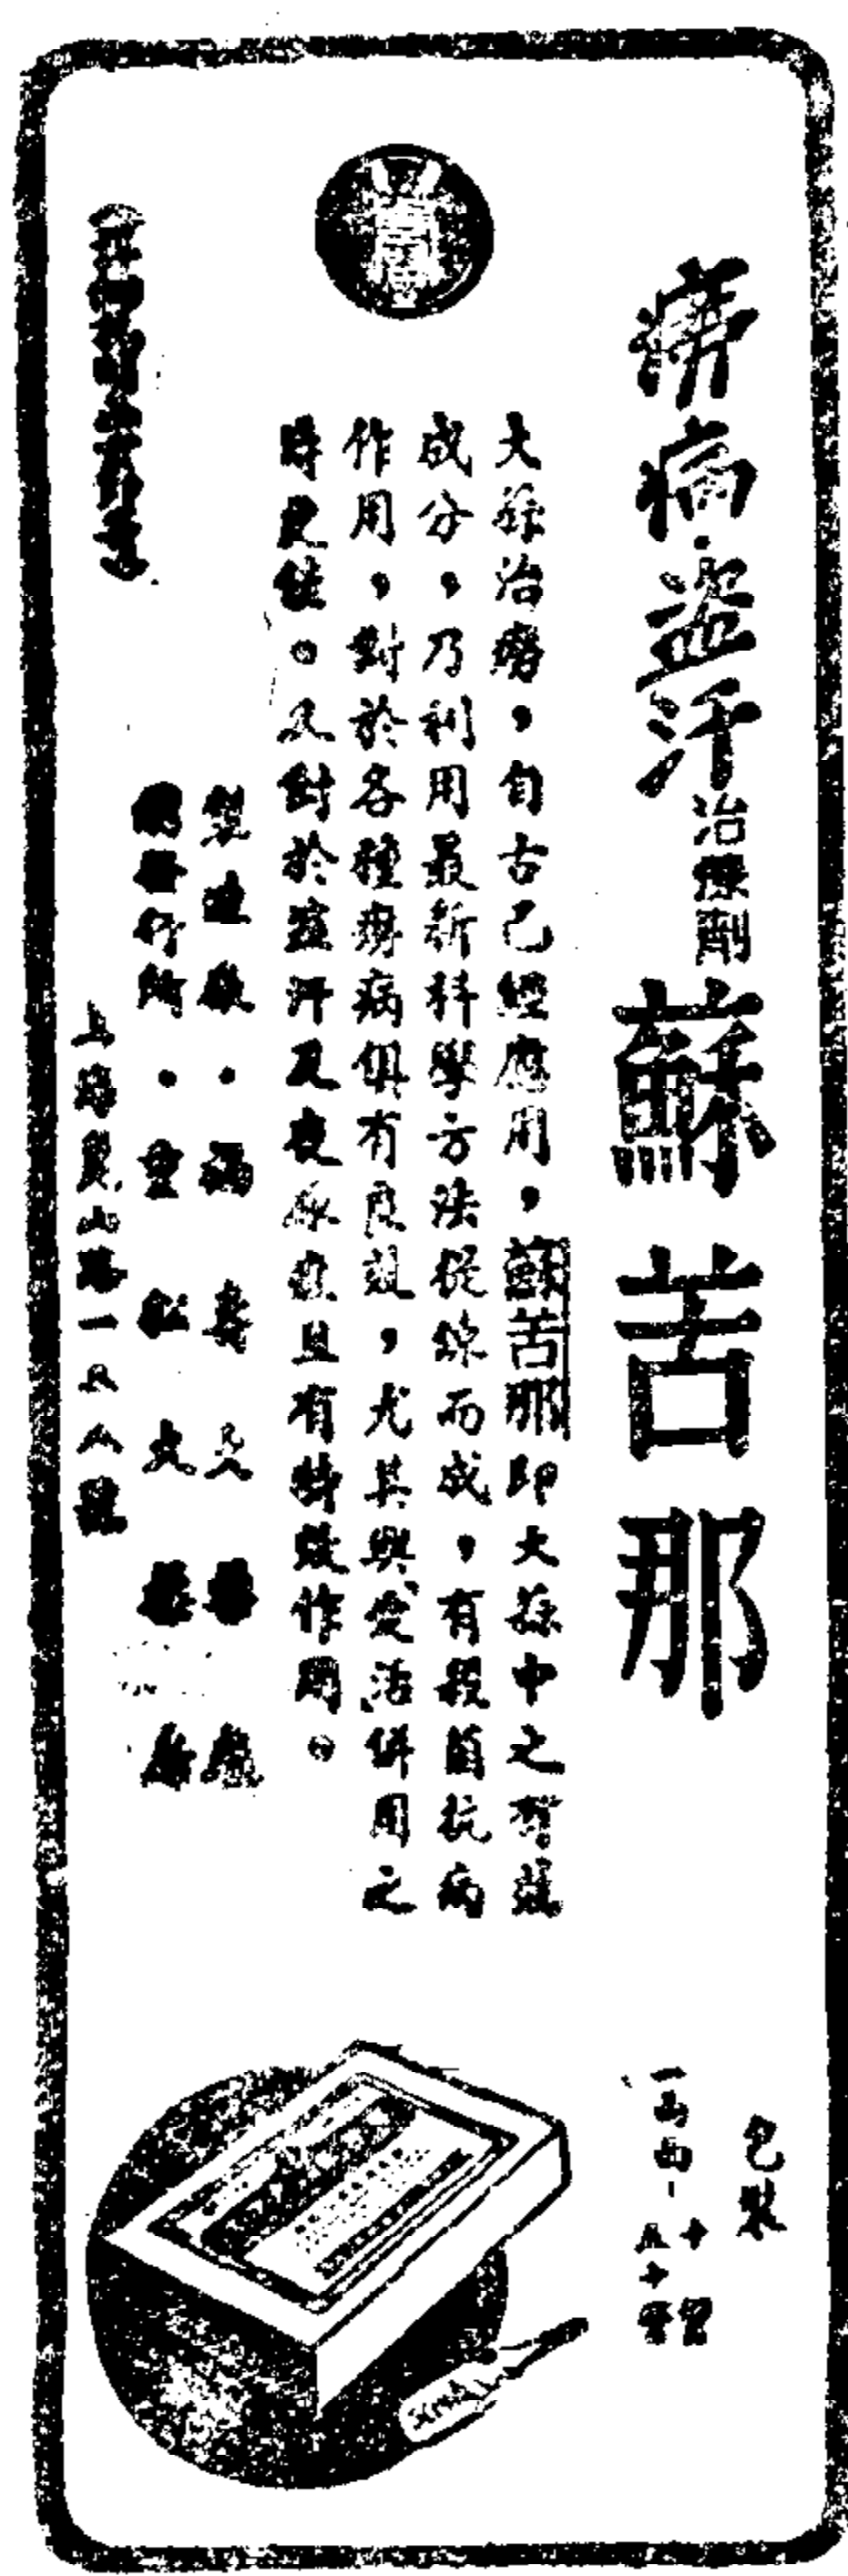 癆病·盜汗治療劑蘇苦那
大蒜治癆，自古已經應用，蘇苦那即大蒜中之有效
成分，乃利用最新科學方法提煉而成，有殺菌抗病
作用，對於各種癆病俱有良效，尤其與愛活併用之
時更佳。又對於盜汗及夜尿症且有特效作用。
製造廠·福壽
發行所·重松大藥房
上海崑山路一五八號
包裝
一西西-十管
五十管